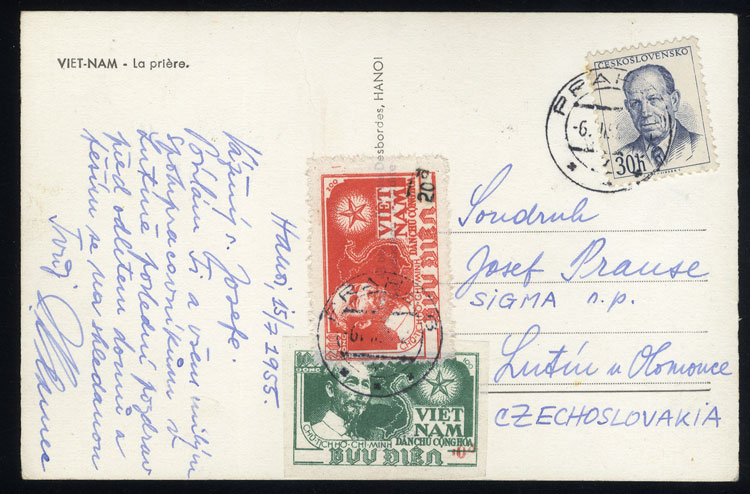 VIET-NAM - La prière.
Desbordes, HANOI
Hanoi, 15/7 1955.
Vážený s. Josefe.
Posílám Ti a všem milým
spolupracovníkům v
Lutíně poslední pozdrav
před odletem domů a
těším se na shledanou
Tvůj
ČESKOSLOVENSKO
30h
PRAHA
-6.
Soudruh
Josef Prause
SIGMA n.p.
Lutín u Olomouce
CZECHOSLOVAKIA
VIỆT
NAM
DÂN CHỦ CỘNG HÒA
BƯU ĐIỆN
CHỦ TỊCH HỒ-CHÍ-MINH
20đ
PRAHA
VIỆT
NAM
DÂN CHỦ CỘNG HÒA
CHỦ TỊCH HỒ-CHÍ-MINH
BƯU ĐIỆN